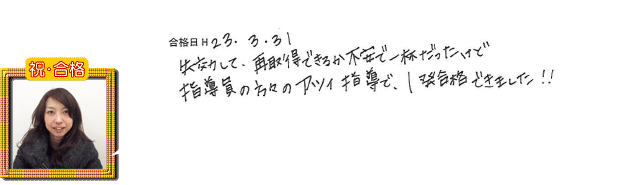 合格日H23.3.31
失効して、再取得できるか不安で一杯だったけど
指導員の方々のアツイ指導で、1発合格できました!!
祝・合格